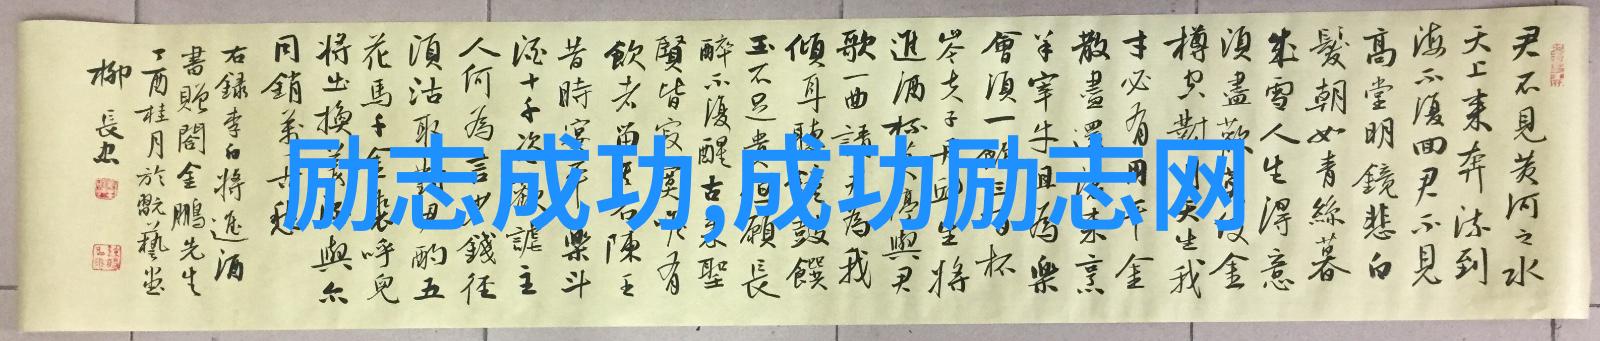 君不見黄河之水
天上来奔流到
海不復回君不見
高堂明鏡悲白
髮朝如青絲暮
成雪人生得意
須盡歡莫使金
樽空對月天生我
才必有用千金
散盡還復来烹
羊宰牛且為樂
會須一飲三百杯
岑夫子丹丘生將
進酒杯莫停與君
歌一曲請君為我
傾耳聽鐘鼓饌
玉不足貴但願長
醉不復醒古来聖
賢皆寂寞唯有
飲者留其名陳王
昔時宴平樂斗
酒十千恣歡謔主
人何為言少錢徑
須沽取對君酌五
花馬千金裘呼兒
將出換美酒與尔
同銷萬古愁
右録李白將進酒
書贈閻金鵬先生
丁酉桂月於翫藝堂
柳長忠
励志成功,成功励志网